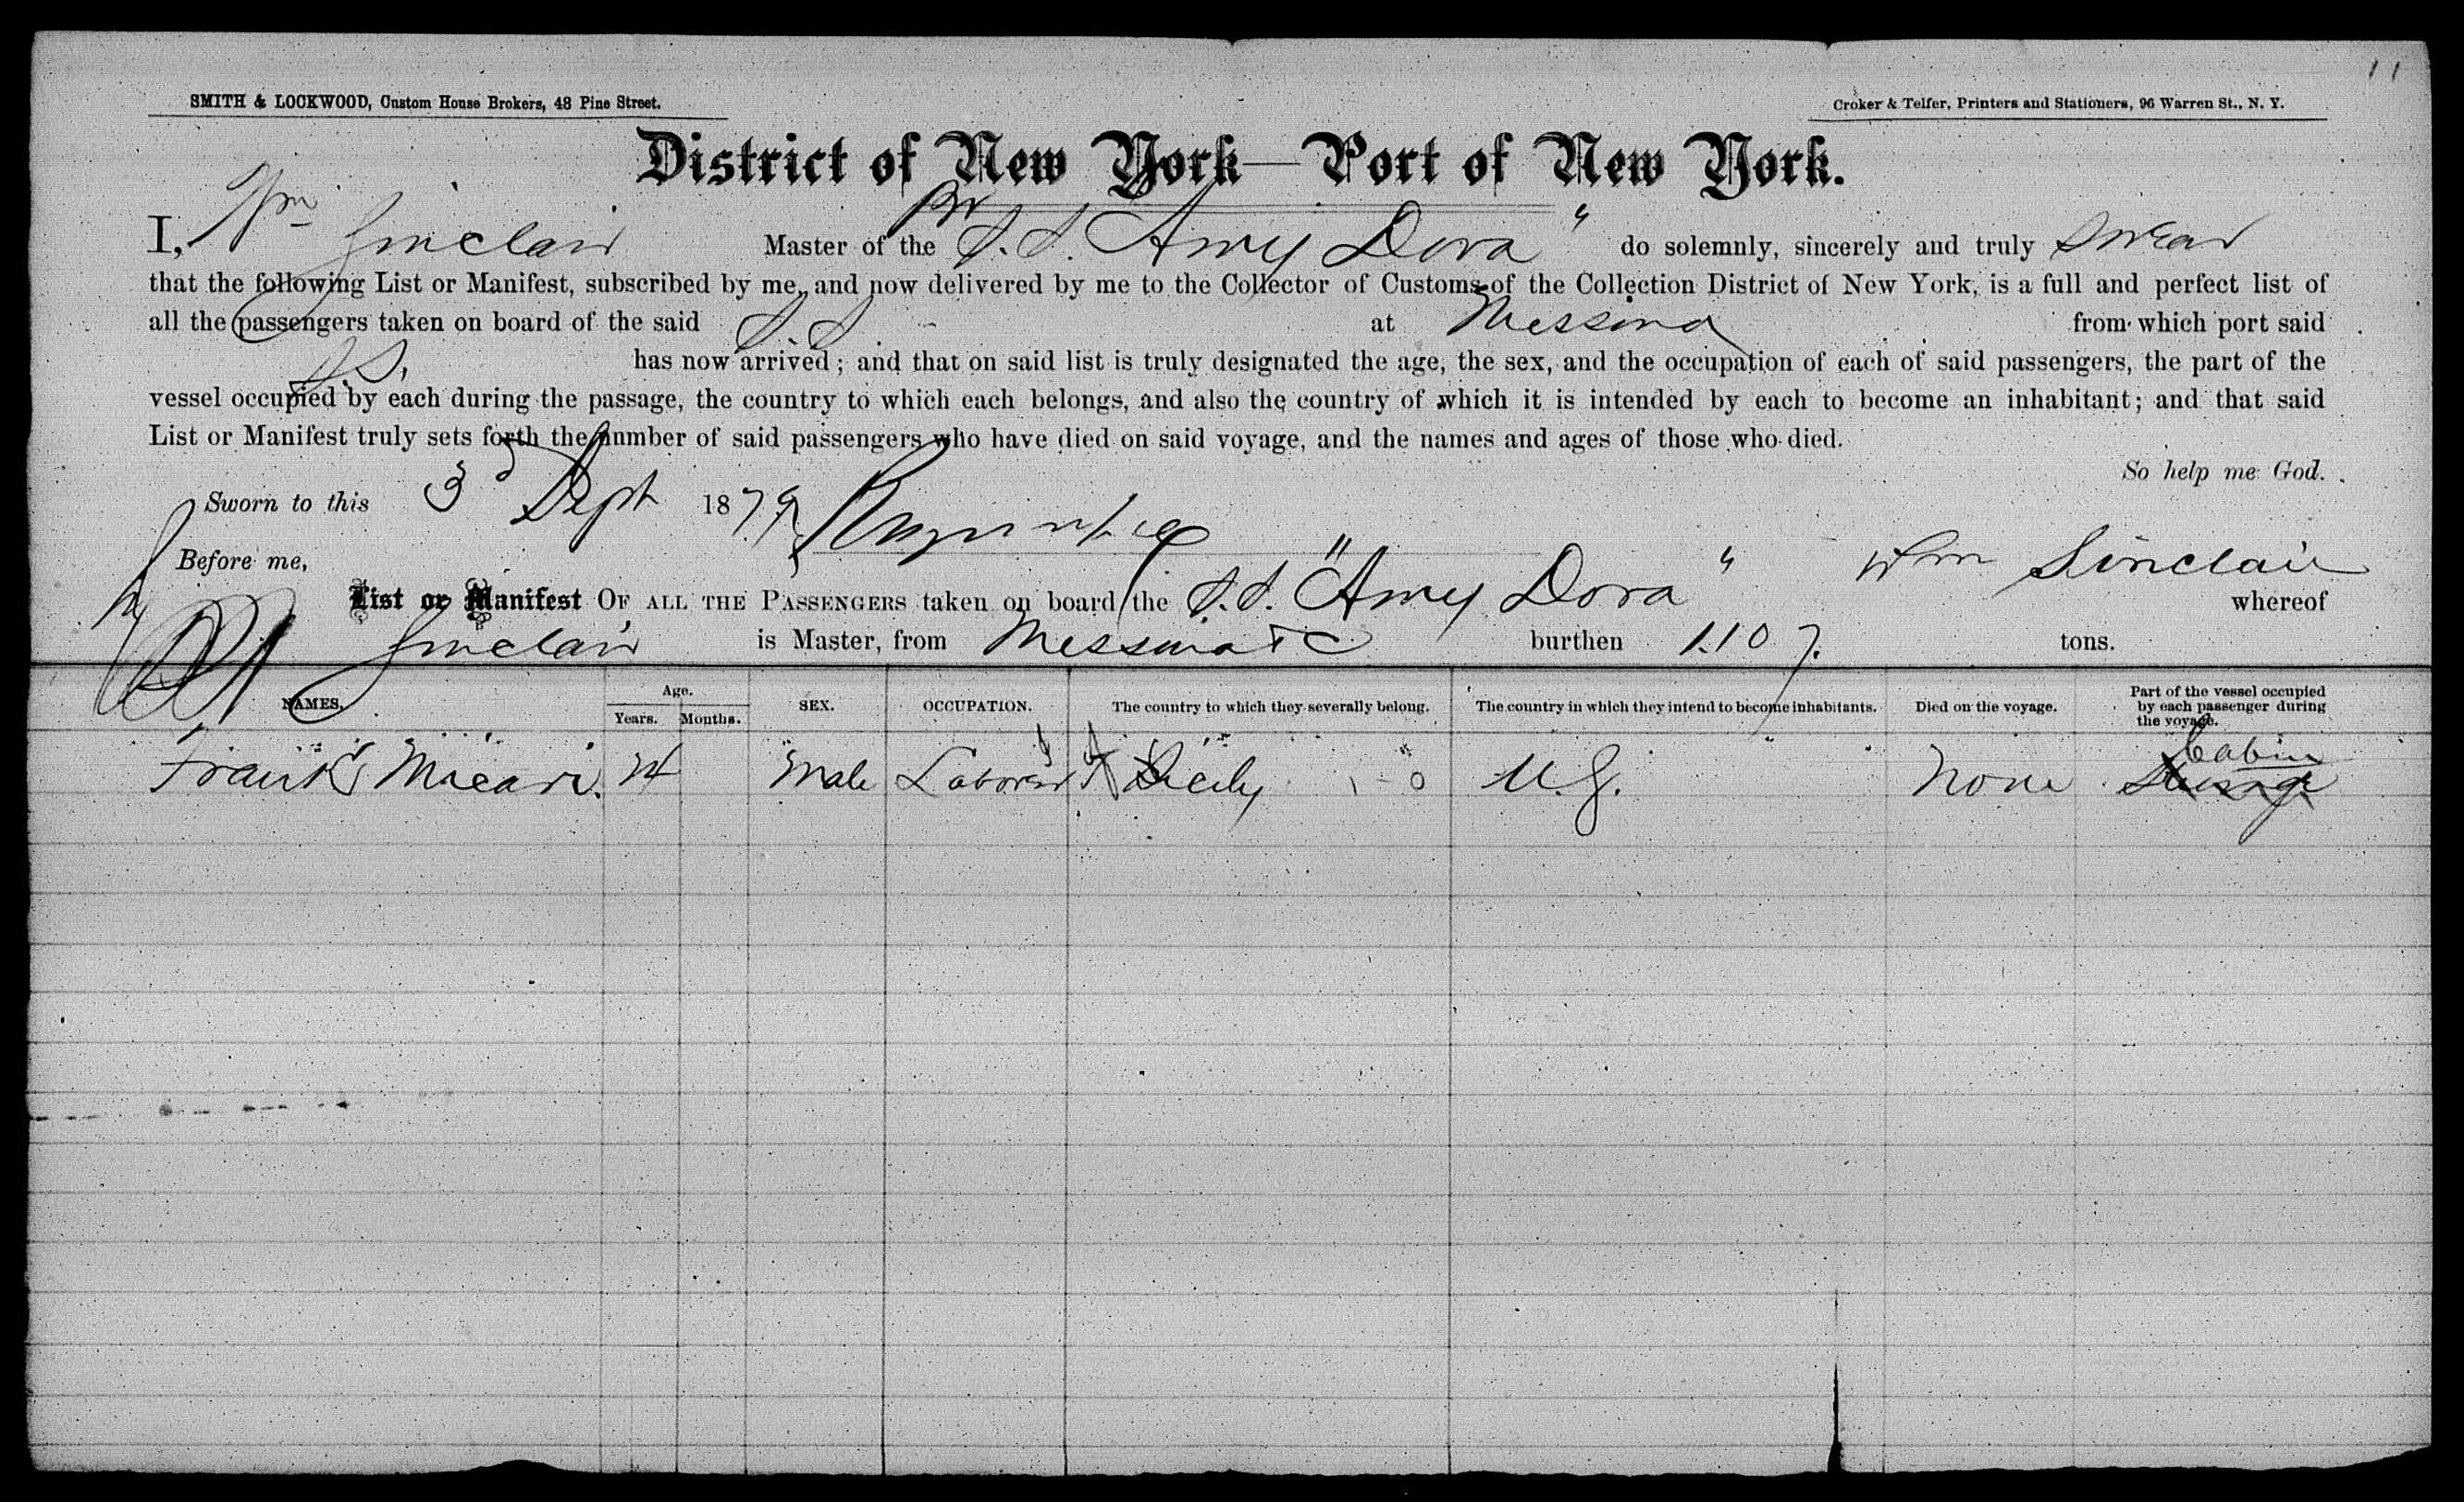 11
SMITH & LOCKWOOD, Custom House Brokers, 48 Pine Street.
Croker & Telfer, Printers and Stationers, 96 Warren St., N. Y.
District of New York—Port of New York.
Br
I, Wm Sinclair Master of the S.S. "Amy Dora" do solemnly, sincerely and truly swear
that the following List or Manifest, subscribed by me, and now delivered by me to the Collector of Customs of the Collection District of New York, is a full and perfect list of
all the passengers taken on board of the said S.S at Messina from which port said
S.S. has now arrived; and that on said list is truly designated the age, the sex, and the occupation of each of said passengers, the part of the
vessel occupied by each during the passage, the country to which each belongs, and also the country of which it is intended by each to become an inhabitant; and that said
List or Manifest truly sets forth the number of said passengers who have died on said voyage, and the names and ages of those who died.
So help me God.
Sworn to this 3d Sept 1879
Before me,
Wm Sinclair
List or Manifest OF ALL THE PASSENGERS taken on board the S.S. "Amy Dora" whereof
Sinclair is Master, from Messina &c burthen 1107. tons.
NAMES. Age. Years. Months. SEX. OCCUPATION. The country to which they severally belong. The country in which they intend to become inhabitants. Died on the voyage. Part of the vessel occupied by each passenger during the voyage.
Frank Micari. 24 Male Laborer Sicily U.S. None Cabin Steerage